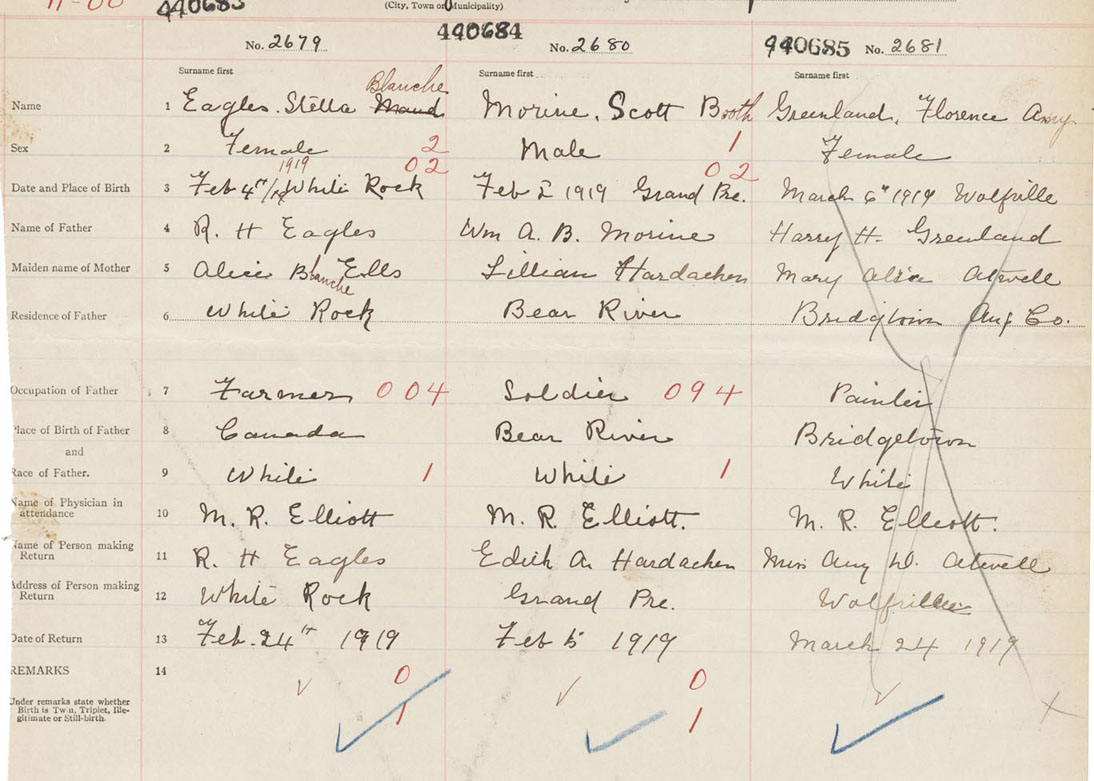 440683
(City, Town or Municipality)
440684
440685
No. 2679 No. 2680 No. 2681
Surname first Surname first Surname first
Blanche
Name 1 Eagles. Stella Maud Morine, Scott Booth Greenland, Florence Amy
Sex 2 Female 2 Male 1 Female
1919 02 02
Date and Place of Birth 3 Feb 4th/19 White Rock Feb 2 1919 Grand Pre. March 6th 1919 Wolfville
Name of Father 4 R. H Eagles Wm A. B. Morine Harry H. Greenland
Maiden name of Mother 5 Alice Blanche Eells Lillian Hardacken Mary Alice Atwell
Residence of Father 6 White Rock Bear River Bridgetown Co.
Occupation of Father 7 Farmer 004 Soldier 094 Painter
Place of Birth of Father 8 Canada Bear River Bridgetown
and
Race of Father. 9 White 1 White 1 White
Name of Physician in
attendance 10 M. R. Elliott M. R. Elliott. M. R. Elliott.
Name of Person making
Return 11 R. H Eagles Edith A. Hardacken Amy D. Atwell
Address of Person making
Return 12 White Rock Grand Pre. Wolfville
Date of Return 13 Feb. 24th 1919 Feb 5 1919 March 24 1919
REMARKS 14
0 0
Under remarks state whether
Birth is Twin, Triplet, Ille-
gitimate or Still-birth.
1 1